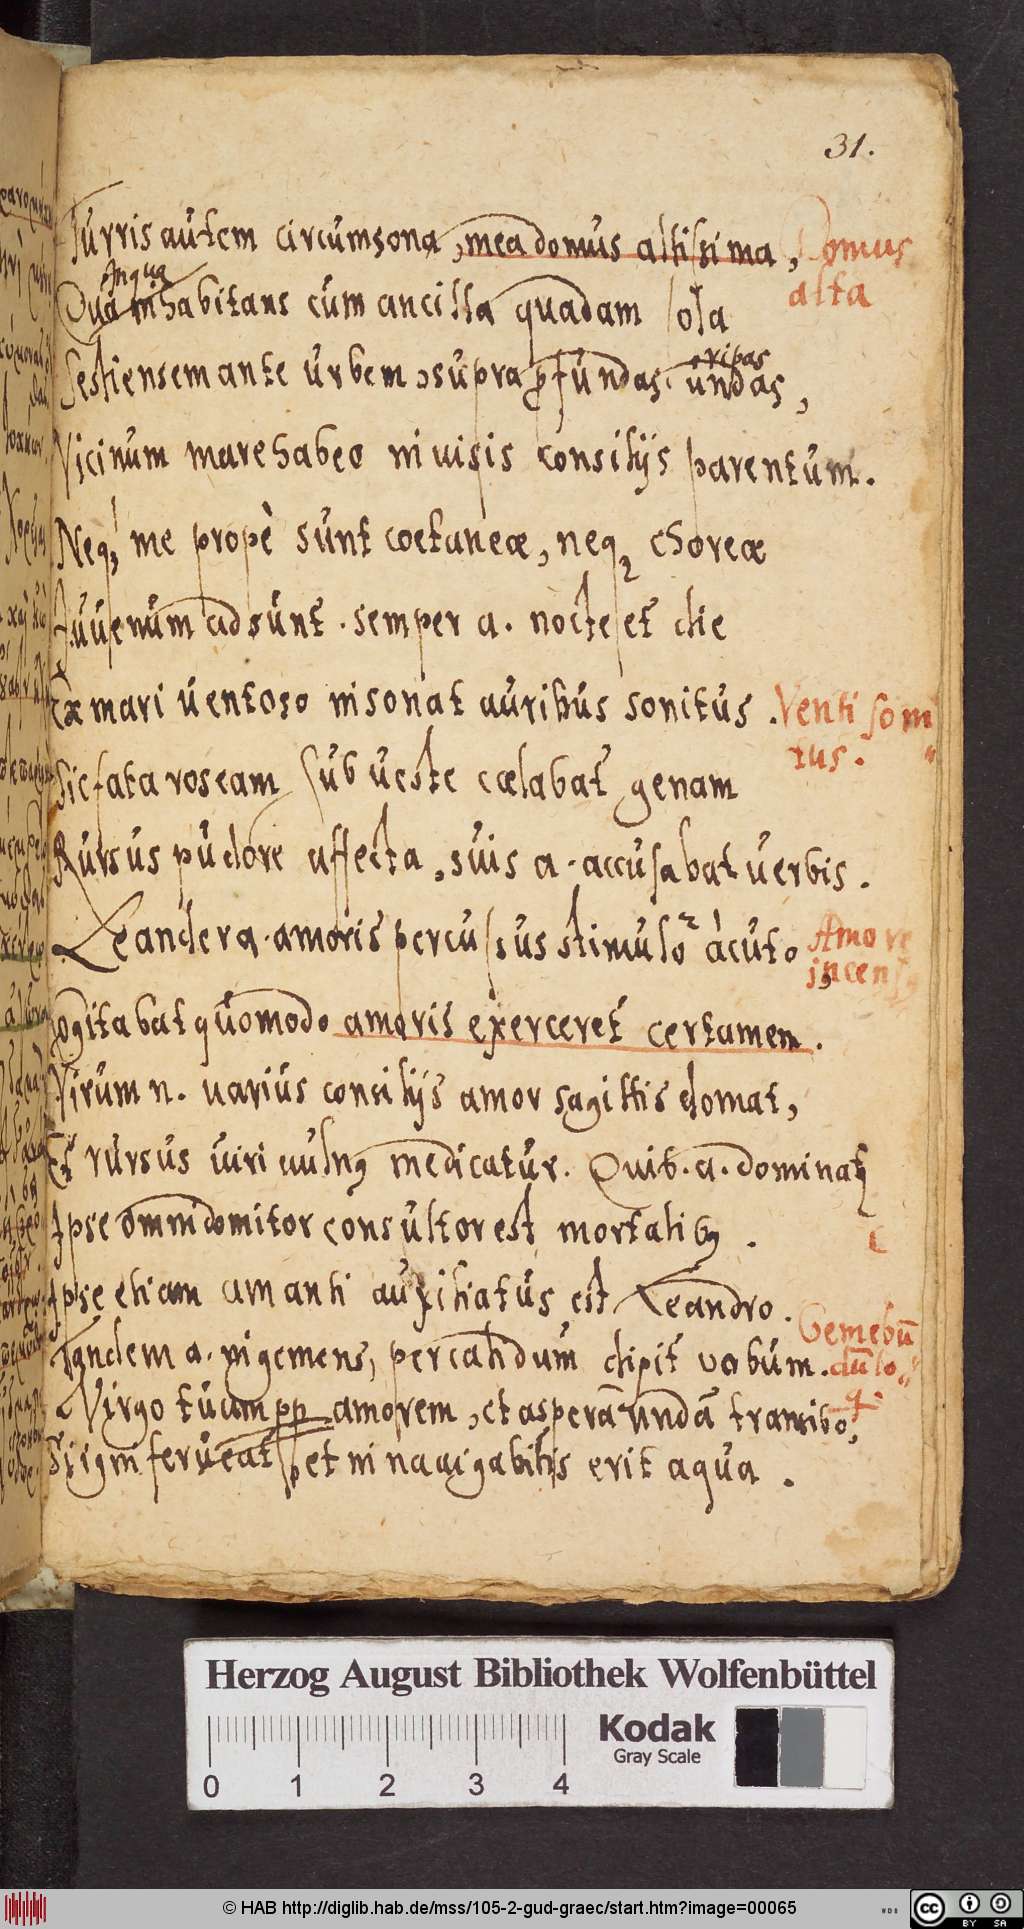 31.
Turris autem circumsona, mea domus altissima, Domus
alta
In qua
Qua inhabitans cum ancilla quadam sola
ripas
Sestiensem ante urbem, supra pfundas undas,
Vicinum mare habeo invisis consilijs parentum.
Neq, me propè sunt coetaneæ, neq choreæ
Iuvenum adsunt. semper a. nocte et die
Ex mari uentoso insonat auribus sonitus. Venti soni
tus.
Sic fata roseam sub ueste cælabat genam
Rursus pudore affecta, suis a. accusabat uerbis.
Leander a. amoris percussus stimulo acuto Amore
incens
Cogitabat quomodo amoris exerceret certamen.
Virum n. uarius concilijs amor sagittis domat,
Et rursus uiri uulnq medicatur. Quib. a. dominat
Ipse omnidomitor consultor est mortalibq.
Ipse etiam amanti auxiliatus est Leandro.
Gemebū
Tandem a. ingemens, percalidum dixit verbum. dū lo
q.
Virgo tuum pp amorem, et asperā undā transibo,
Si igni ferueat, et innauigabilis erit aqua.
Herzog August Bibliothek Wolfenbüttel
Kodak
Gray Scale
0 1 2 3 4
© HAB http://diglib.hab.de/mss/105-2-gud-graec/start.htm?image=00065
WDB
cc BY SA